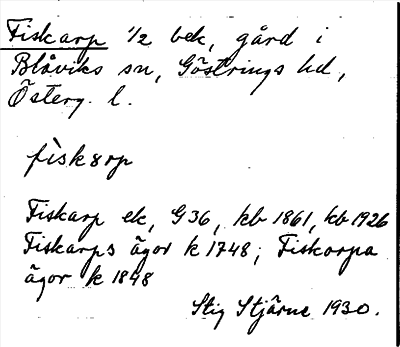 Fiskarp 1/2 bek, gård i
Blåviks sn, Göstrings hd,
Österg. l.
fìskarp
Fiskarp ek, G36, kb 1861, kb 1926
Fiskarps ägor k 1748; Fiskorpa
ägor k 1848
Stig Stjärne 1930.